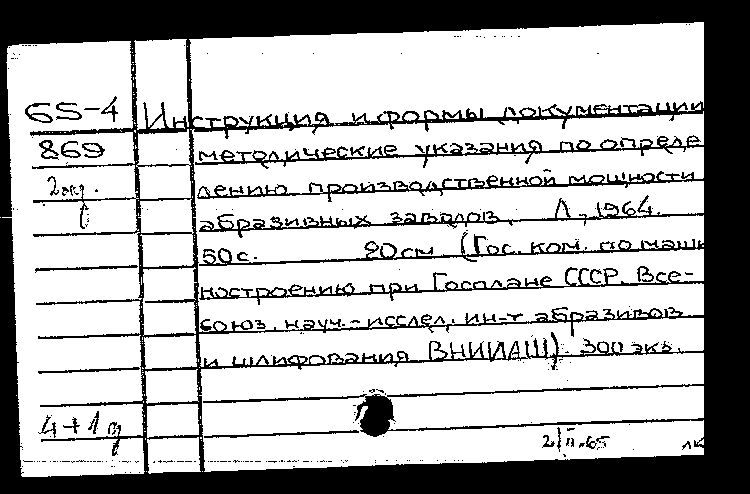 65-4 Инструкция и формы документации
869 методические указания по опреде
2 экз. лению производственной мощности
абразивных заводов. Л., 1964.
50 с. 20 см (Гос. ком. по маши
ностроению при Госплане СССР. Все-
союз. науч.-исслед. ин-т абразивов
и шлифования ВНИИАШ). 300 экз.
4+1 д
2/II.65 лк